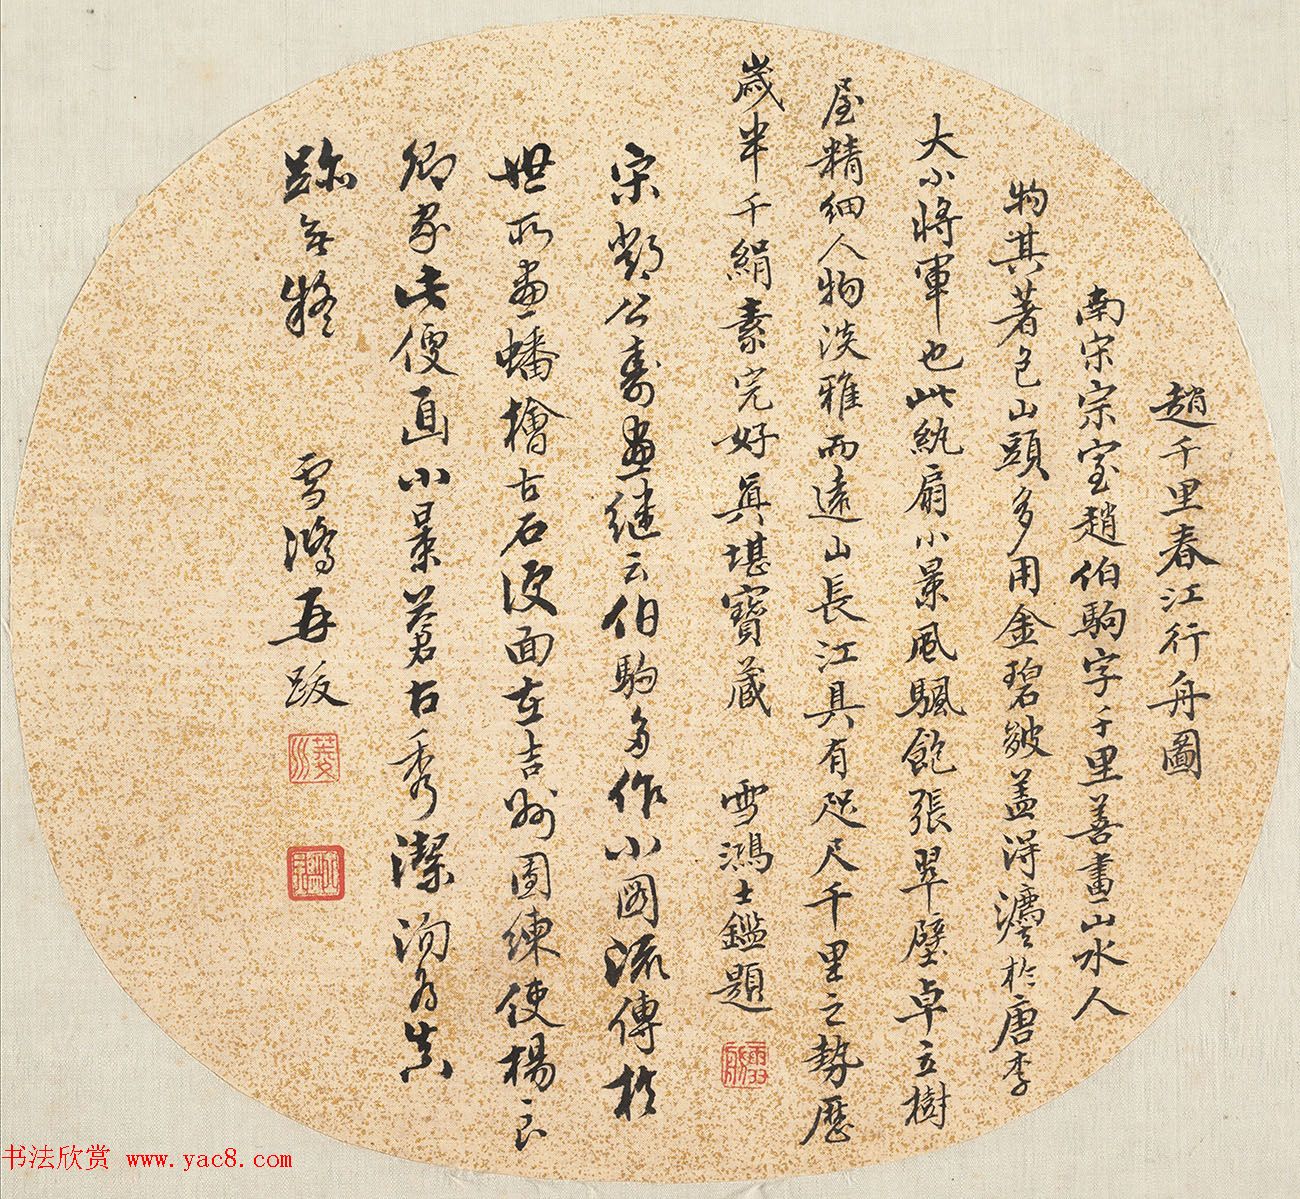 趙千里春江行舟圖
南宋宗室趙伯駒字千里善畫山水人
物其著色山頭多用金碧皴蓋得灋於唐李
大小將軍也此紈扇小景風颿飽張翠壁卓立樹
屋精細人物淡雅而遠山長江具有咫尺千里之勢歷
歲半千絹素完好真堪寶藏 雪鴻士鑑題
宋鄧公壽畫繼云伯駒多作小圖流傳於
世所畫蟠檜古石便面在吉州團練使楊 良
卿家此便面小景蒼古秀潔洵為真
跡無疑 雪鴻再跋
书法欣赏 www.yac8.com